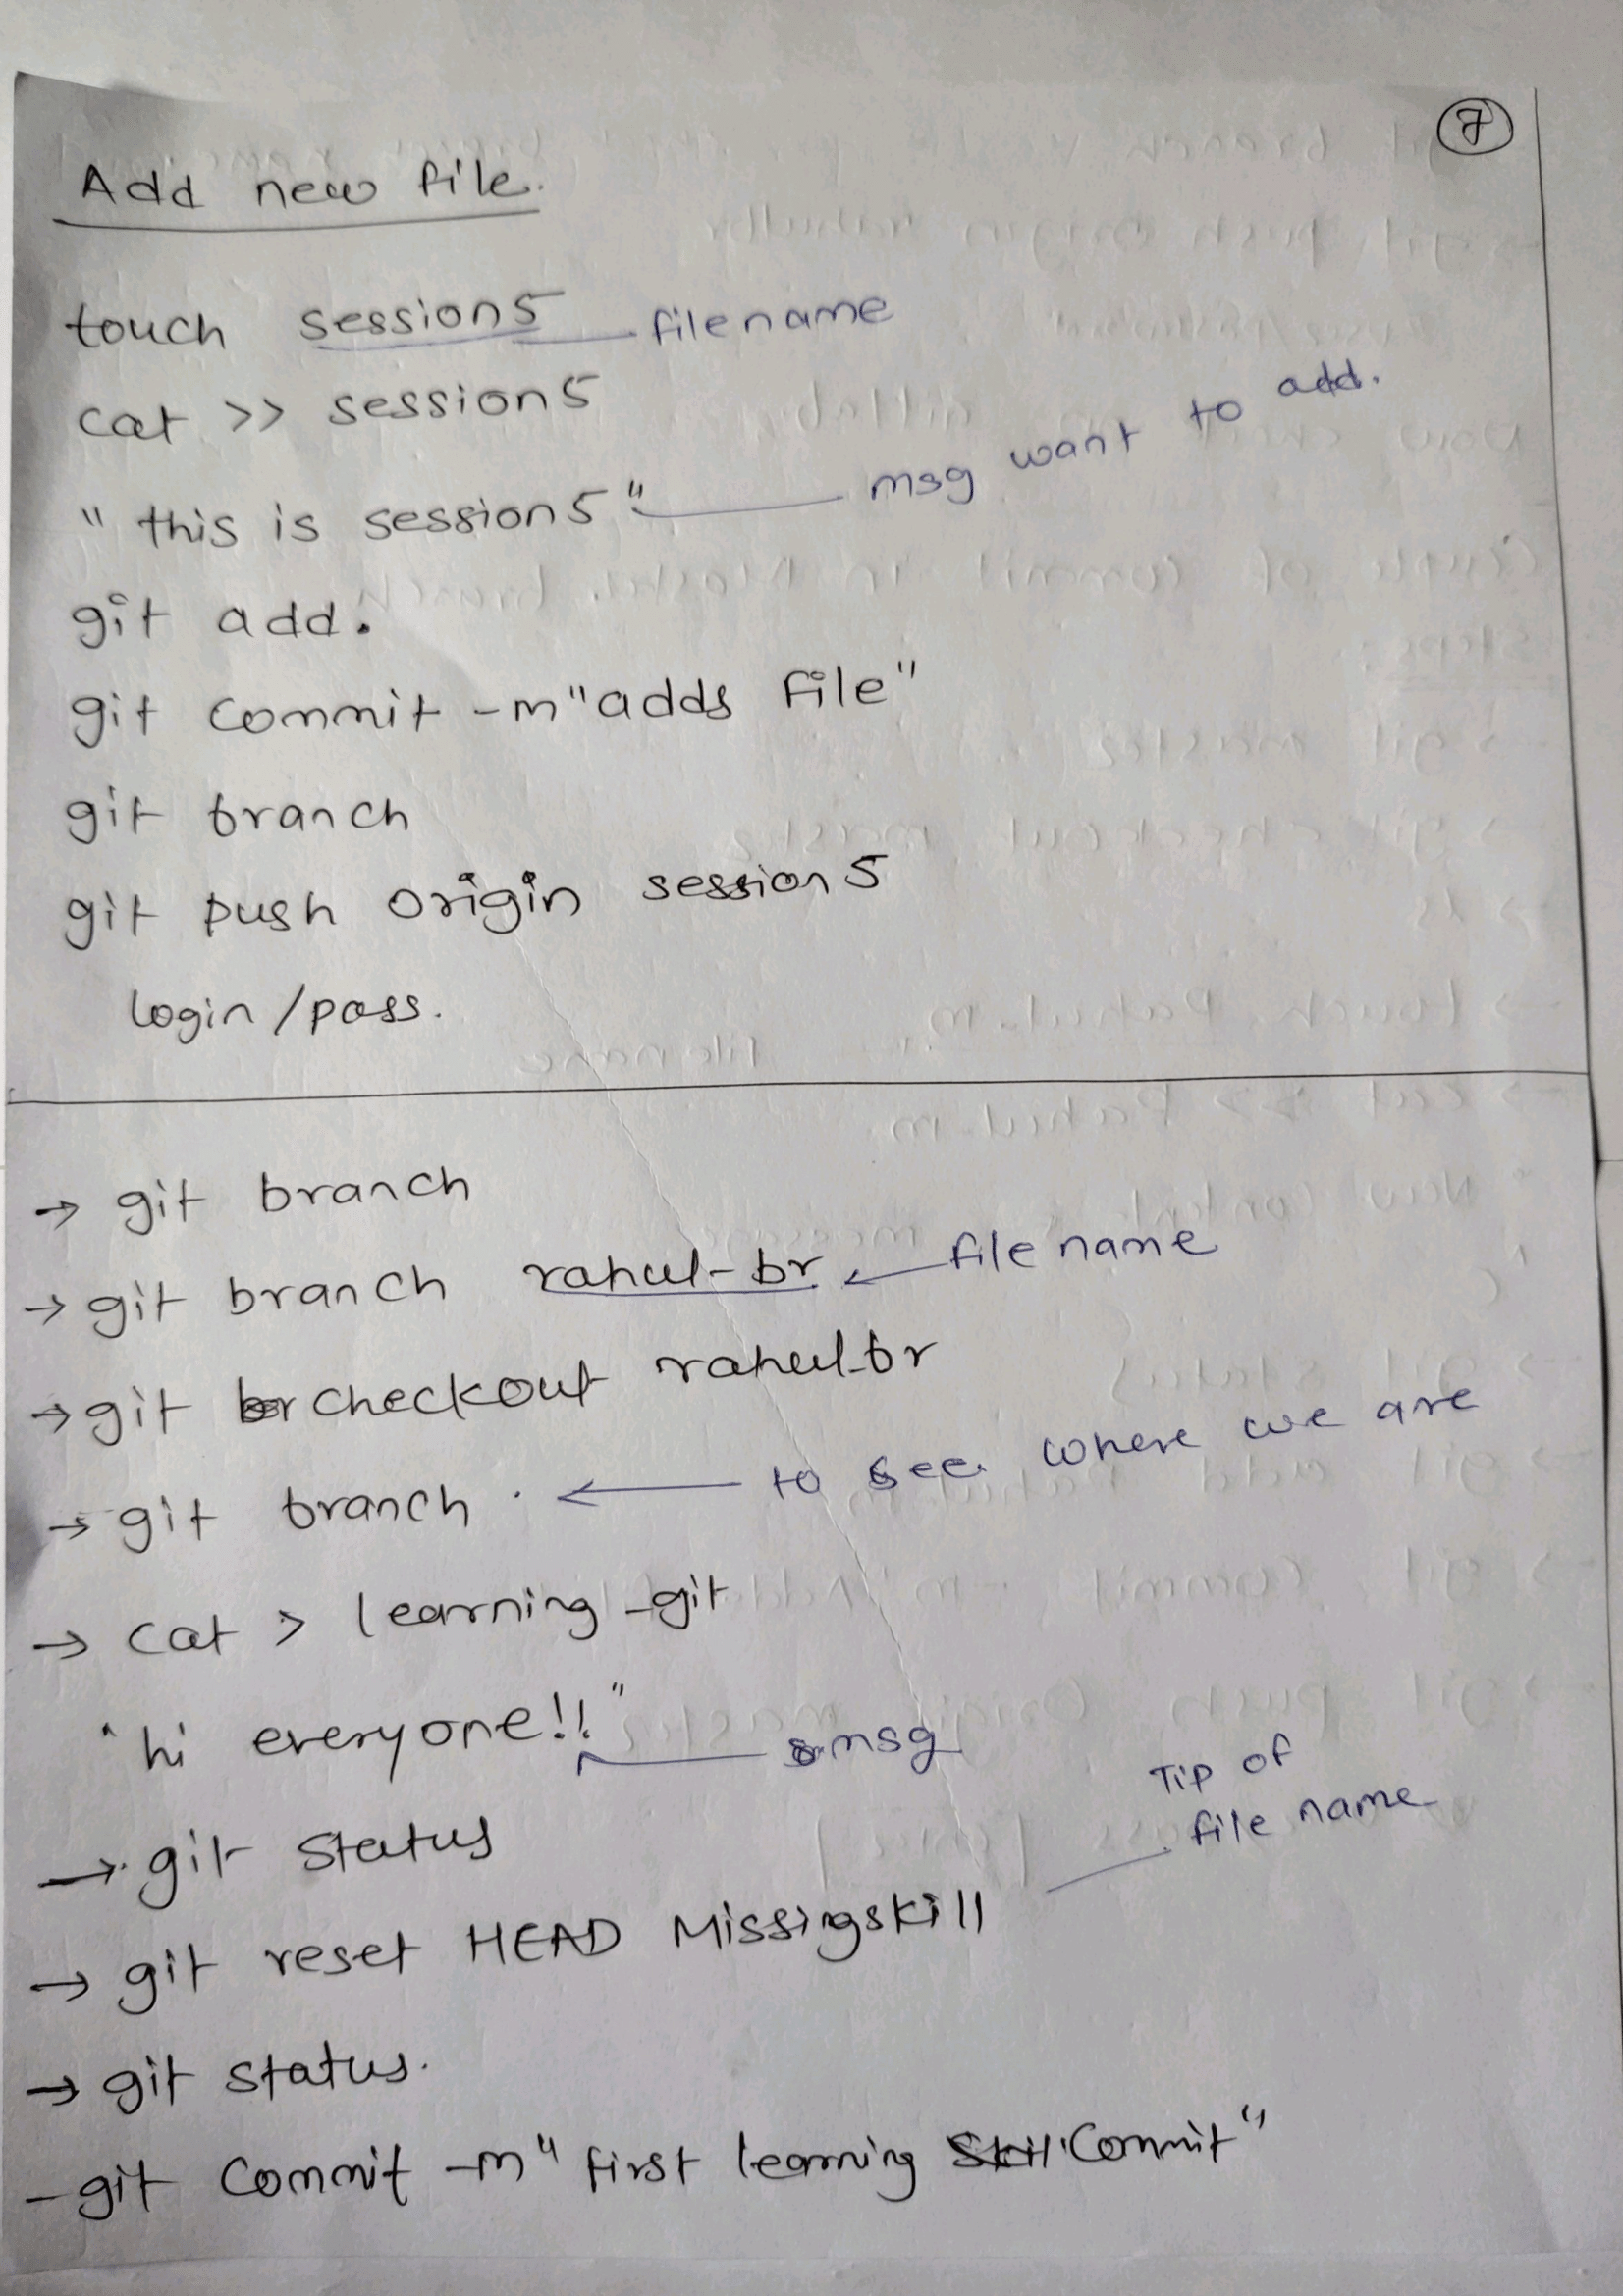 7
Add new file.
touch session5 filename
cat >> session5
"this is session5" msg want to add.
git add.
git commit -m "adds file"
git branch
git push origin session5
login/pass.
→ git branch
→ git branch rahul-br ← file name
→ git checkout rahul-br
→ git branch. ← to see where we are
→ cat > learning-git
"hi everyone!!" msg
→ git status
Tip of
file name
→ git reset HEAD Missingskill
→ git status.
- git commit -m "first learning commit"